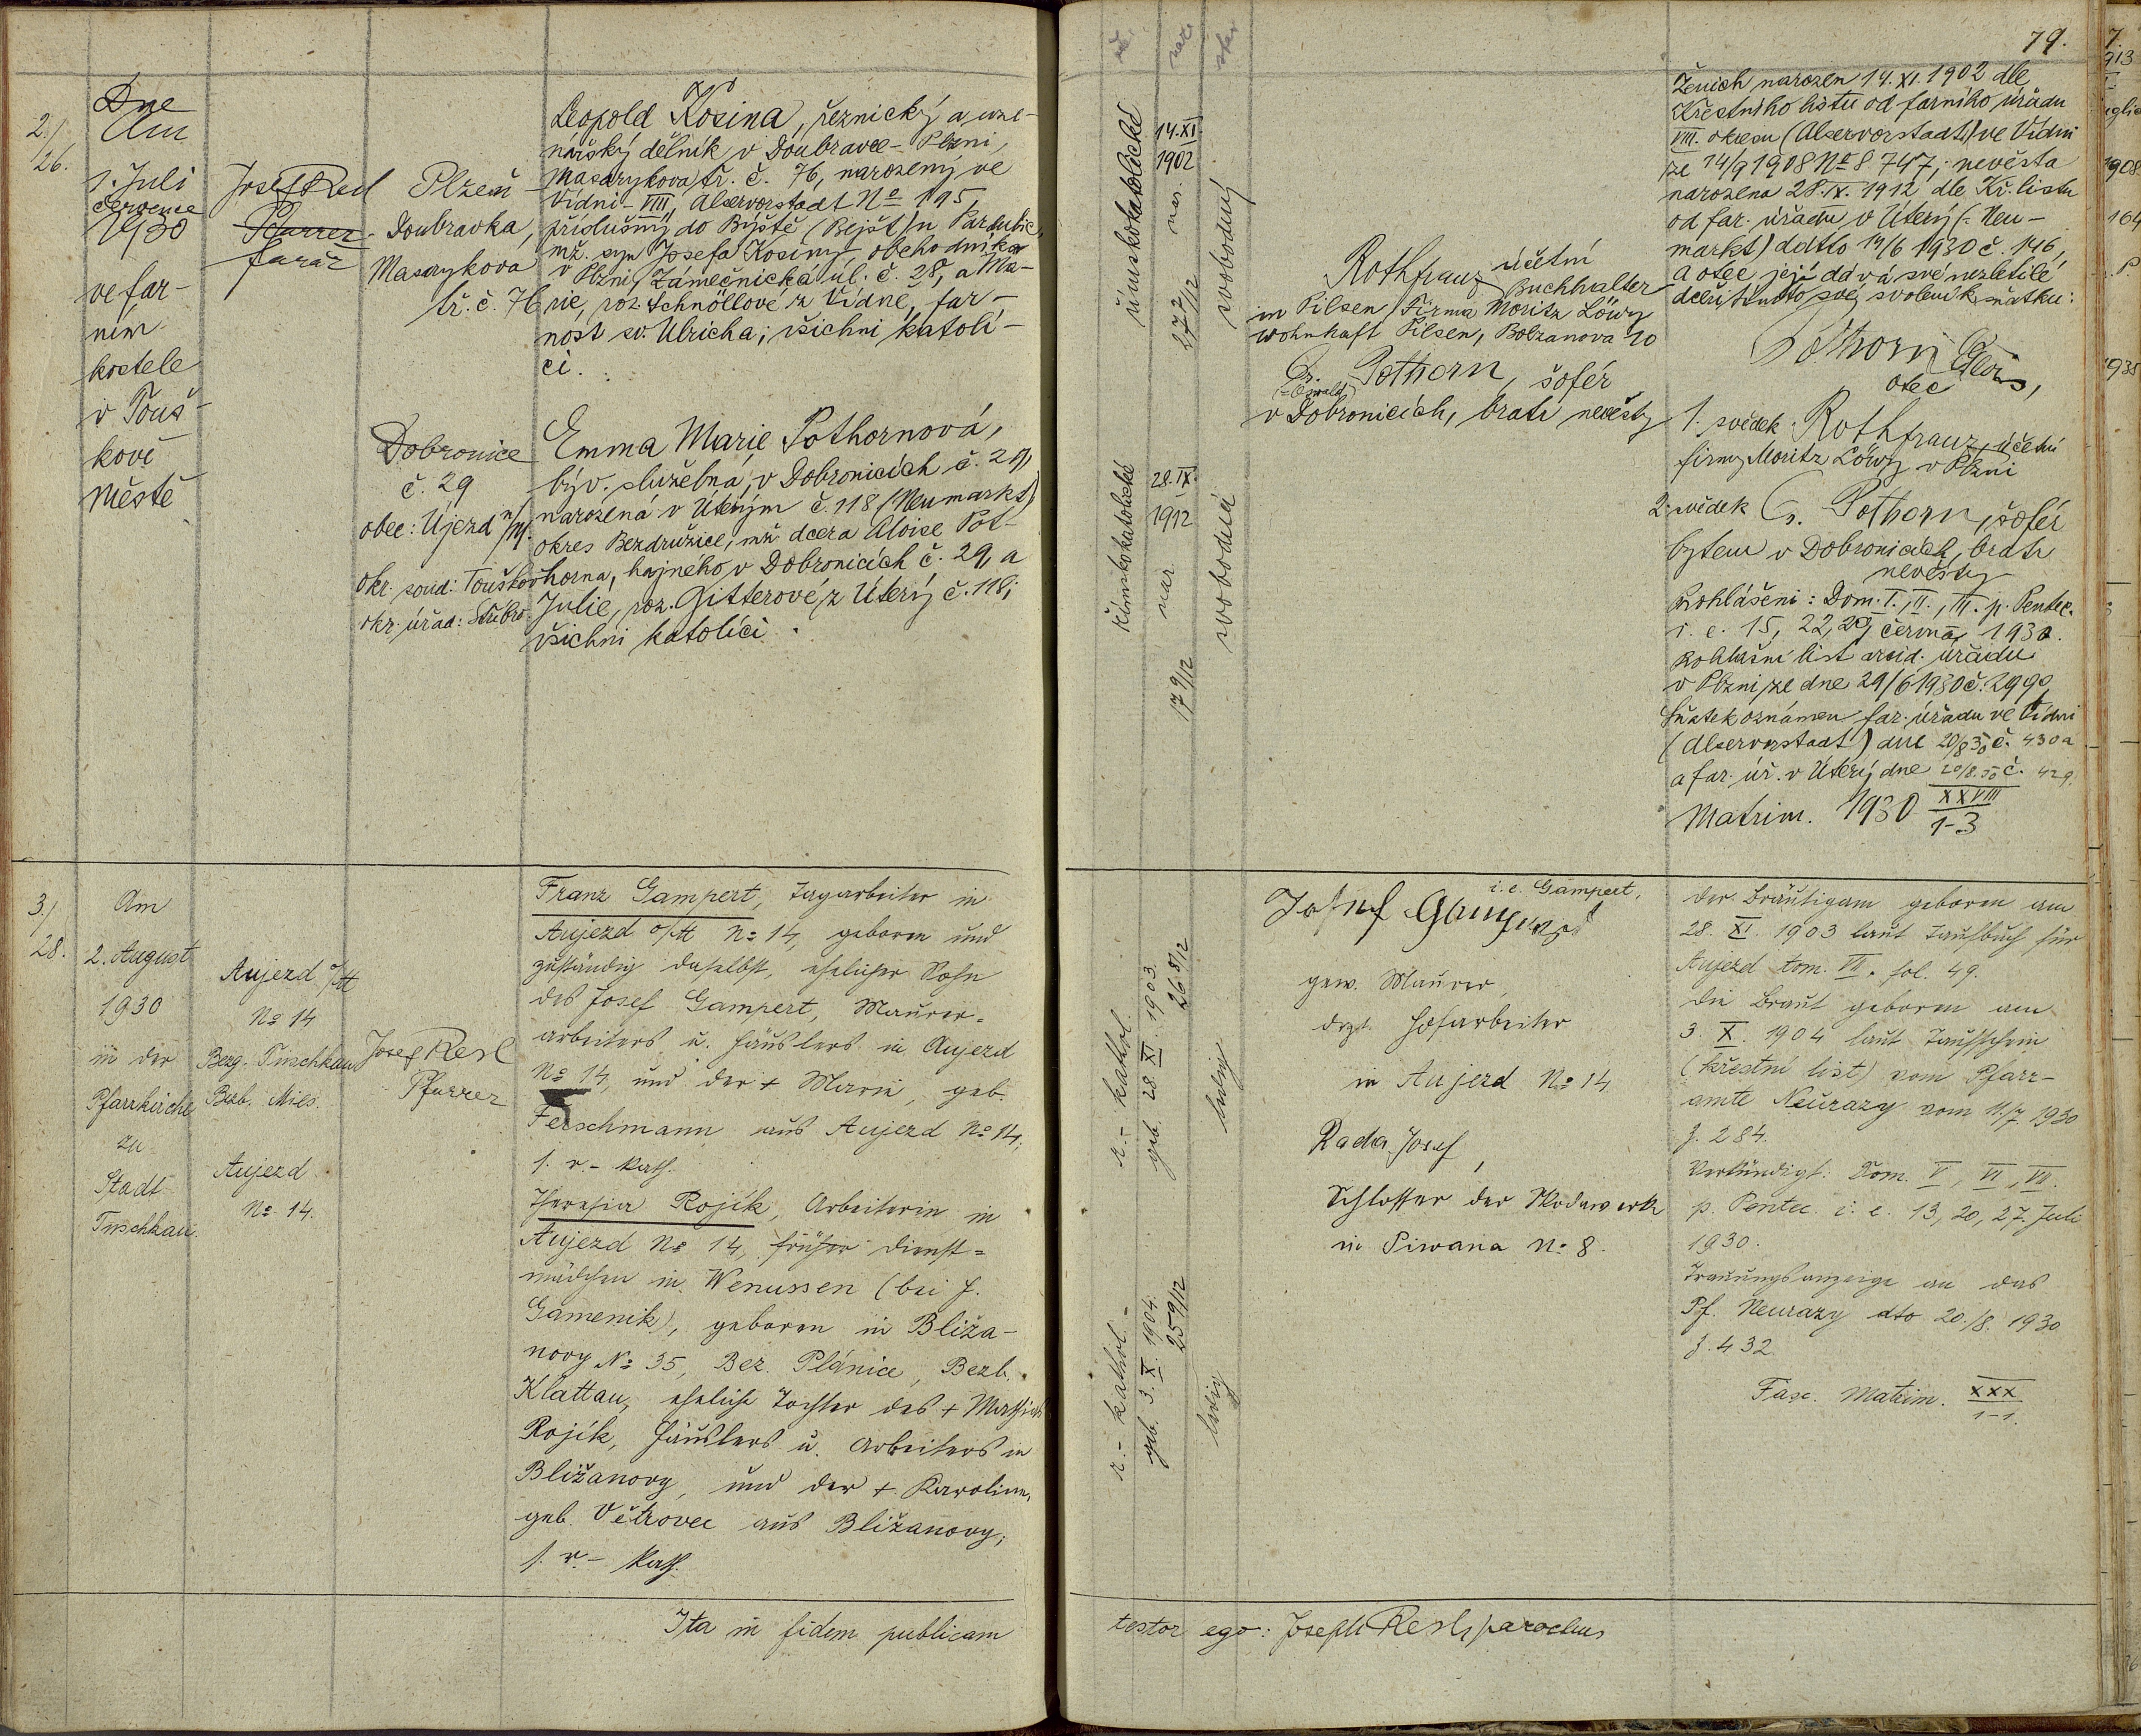 79.
2./
26.
Dne
Am
1. Juli
července
1930
ve far-
ním
kostele
v Touš-
kově
městě
Josef Resl
Pfarrer
farář
Plzeň-
Doubravka,
Masarykova
tř. č. 76
Leopold Kosina, řeznický a uze-
nářský dělník v Doubravce - Plzni,
Masarykova tř. č. 76, narozený ve
Vídni - VIII, Alservorstadt No 195,
příslušný do Býště (Bejšt) u Pardubic,
mž. syn Josefa Kosiny, obchodníka
v Plzni, Zámečnická úl. č. 28, a Ma-
rie, roz. Schnöllové z Vídně, far-
nost sv. Ulricha; všichni katolí-
ci.
Dobronice
č. 29
obec: Újezd n/M.
okr. soud: Touškov
okr. úřad: Stříbro.
Emma Marie Pothornová,
býv. služebná, v Dobronicích č. 29,
narozená v Úterým č. 118 (Neumarkt)
okres Bezdružice, mž. dcera Aloise Pot-
horna, hajného v Dobronicích č. 29, a
Julie, roz. Gitterové z Úterý č. 118;
všichni katolíci.
římskokatolické
14. XI.
1902
nar.
27 7/12
svobodný
římskokatolické
28. IX.
1912
nar
17 9/12
svobodná
Rothfranz účetní
Buchhalter
in Pilsen Firma Moritz Löwy
wohnhaft Pilsen, Bolzanova 10
Pothorn, šofér
(=Oswald)
v Dobronicích, bratr nevěsty
Ženich narozen 14. XI. 1902 dle
Křestního listu od farního úřadu
VIII. okresu (Alservorstadt) ve Vídni
ze 14/9 1908 No 8747; nevěsta
narozena 28. IX. 1912 dle Kř. listu
od far. úřadu v Úterý (= Neu-
markt) ddtto 14/6 1930 č. 146,
a otec její dává své nezletilé
dceři tímto své svolení k sňatku:
Pothorn Alois,
otec
1. svědek Rothfranz, účetní
firmy Moritz Löwy v Plzni
2. svědek Pothorn, šofér
bytem v Dobronicích, bratr
nevěsty
Prohlášení: Dom. I., II., III. p. Pentec.
i. e. 15, 22, 29, června 1930.
Rohlašní list arcid. úřadu
v Plzni ze dne 29/6 1930 č. 2990,
Sňatek oznámen far. úřadu ve Vídni
(Alservorstadt) dne 20/8 30 č. 430a
a far. úř. v Úterý dne 20/8. 30 č. 429.
Matrim. 1930 XXVIII
1-3
3./
28.
Am
2. August
1930
in der
Pfarrkirche
zu
Stadt
Tuschkau.
Aujezd o/M
No 14
Bezg. Tuschkau
Bezb. Mies.
Aujezd
No 14.
Josef Resl
Pfarrer
Franz Gampert, Tagarbeiter in
Aujezd o/M No 14, geboren und
zuständig daselbst, ehelicher Sohn
des Josef Gampert, Maurer-
arbeiters u. Häuslers in Aujezd
No 14, und der + Marie, geb.
Ferschmann aus Aujezd No 14;
s. r.- kath.
Theresia Rojík, Arbeiterin in
Aujezd No 14, früher Dienst=
mädchen in Wenussen (bei J.
Gamenik), geboren in Bliža-
novy No 35, Bez. Plánice, Bezb.
Klattau, eheliche Tochter des + Mathias
Rojík, Häuslers u. Arbeiters in
Bližanovy, und der + Karoline,
geb. Větrovec aus Bližanovy;
s. r.- kath.
r.- kathol.
geb. 28 XI. 1903.
26 8/12
ledig
r.- kathol.-
geb. 3. X. 1904.
25 9/12
ledig
i. e. Gampert,
Josef Gampert
gew. Maurer,
drzt. Hofarbeiter
in Aujezd No 14
Rada Josef,
Schlosser der Skodawerke
in Piwana No 8.
der Bräutigam geboren am
28. XI. 1903 laut Taufbuch für
Aujezd tom. VII. fol. 49.
die Braut geboren am
3. X. 1904 laut Taufschein
(křestní list) vom Pfarr-
amte Neurazy vom 11./7. 1930
Z. 284.
Verkündigt: Dom. V, VI, VII.
p. Pentec. i. e. 13, 20, 27. Juli
1930.
Trauungsanzeige an das
Pf. Neurazy dto 20./8. 1930
Z. 432.
Fasc. Matrim. XXX
1-1.
Ita in fidem publicam
testor ego: Joseph Resl, parochus